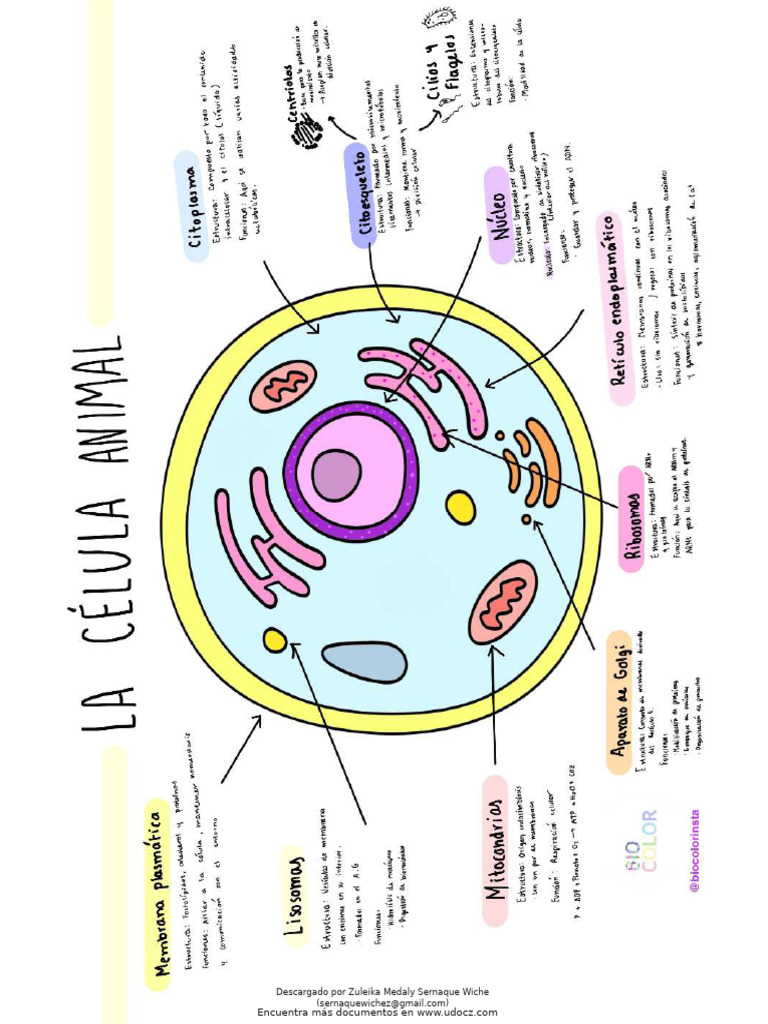 LA CÉLULA ANIMAL
Membrana plasmática
Estructura: Fosfolípidos, colesterol y proteínas
Funciones: Aislar a la célula, mantener homeostasis
y comunicación con el entorno
Lisosomas
Estructura: Vesículas de membrana
con enzimas en su interior.
· Formados en el A.G
Funciones:
· Hidrólisis de
· Digestión de
Mitocondrias
Estructura: Origen endosimbiótico
· con un par de membranas
Función: Respiración celular
P + ADP + + O2 → ATP + H2O + CO2
Aparato de Golgi
Estructura: Conjunto de membranas derivado
del
Funciones:
· de proteínas
·
· Organización de
Ribosomas
Estructura: Formados por ARNr
y proteínas
Función: Aquí se acopla el ARNm y
ARNt para la síntesis de proteína.
Retículo endoplasmático
Estructura: Membranas continuas con el núcleo
· Liso: sin ribosomas / rugoso: con ribosomas
Funciones: Síntesis de proteínas en los ribosomas asociados
y generación de fosfolípidos
Núcleo
Estructura: Compuesto por envoltura
nuclear, cromatina y nucleolo
Nucleolo: Encargado de sintetizar ribosomas
Funciones:
· Guardar y proteger el ADN.
Citoesqueleto
Estructura: Formado por microfilamentos
filamentos intermedios y microtúbulos
Funciones: Mantiene forma y movimiento
→ División celular
Citoplasma
Estructura: Compuesto por todo el contenido
intracelular y el citosol (líquido)
Funciones: Aquí se realizan varias actividades
metabólicas.
Centriolos
· Base para la producción de
movimiento
→ Acoplan
división celular.
Cilios y
Flagelos
Estructura: Extensiones
de citoplasma y micro-
túbulos del citoesqueleto
Función:
· Movilidad de la célula
BIO
COLOR
@biocolorinsta
Descargado por Zuleika Medaly Sernaque Wiche
(sernaquewichez@gmail.com)
Encuentra más documentos en www.udocz.com